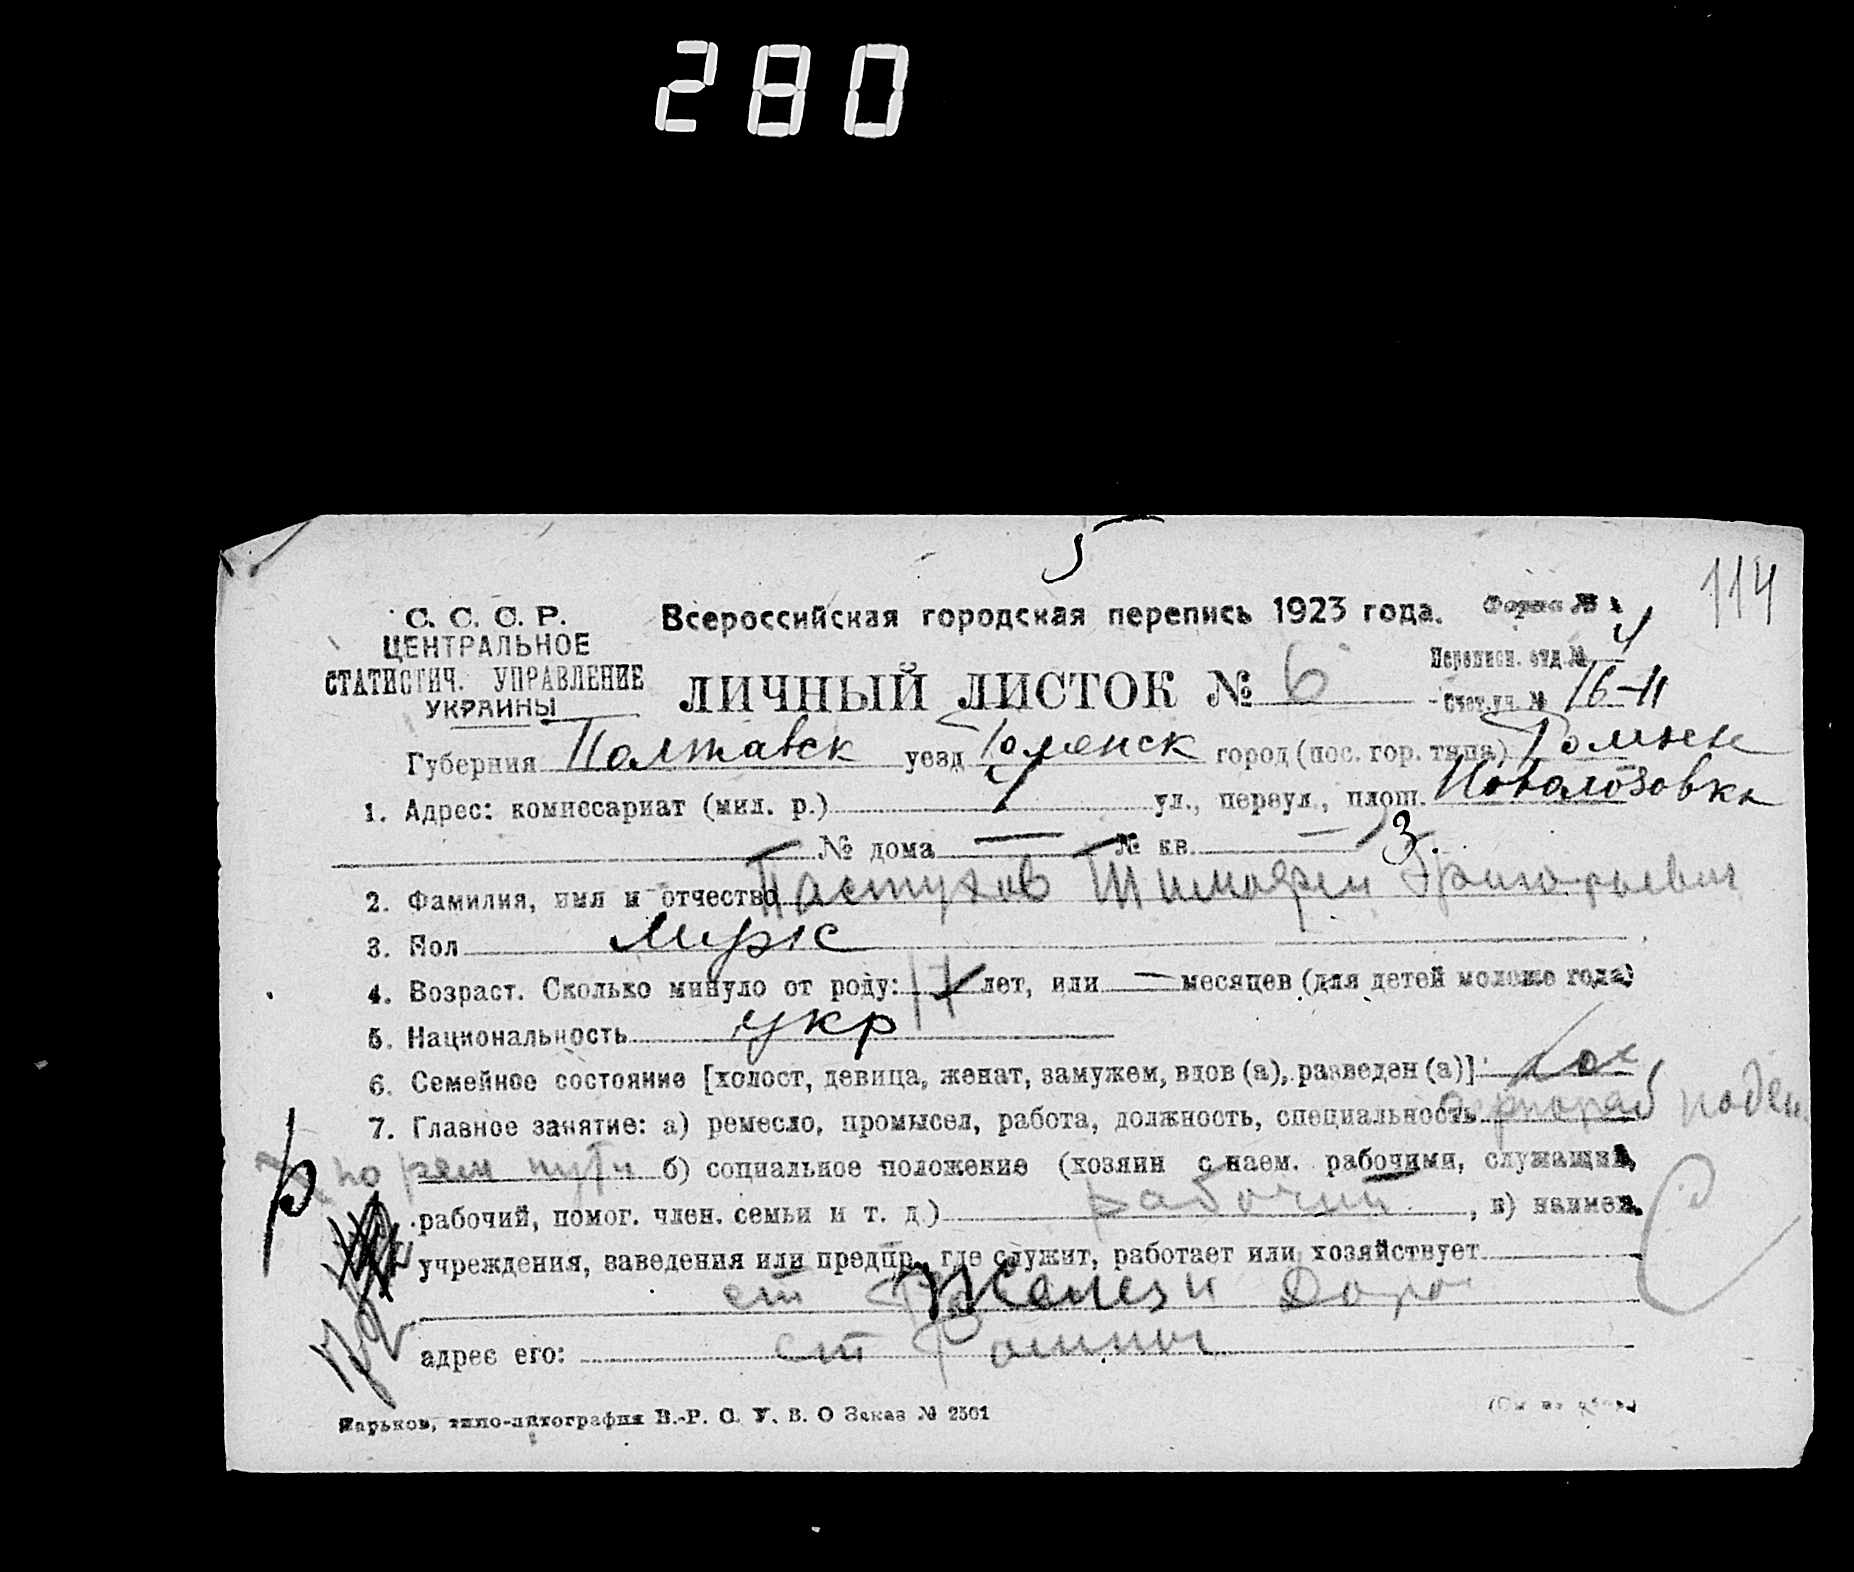 280
5
114
С. С. С. Р.
ЦЕНТРАЛЬНОЕ
СТАТИСТИЧ. УПРАВЛЕНИЕ
УКРАИНЫ
Всероссийская городская перепись 1923 года.
Форма №
Переписн. отд. № 4
ЛИЧНЫЙ ЛИСТОК № 6
Счет. уч. № 16-11
Губерния Полтавск уезд Роменск город (пос. гор. типа) Ромны
1. Адрес: комиссариат (мил. р.) 4 ул., переул., площ.
№ дома — № кв. — 3.
2. Фамилия, имя и отчество Пастухов Тимофей Григорьевич
3. Пол Мужс
4. Возраст. Сколько минуло от роду: 17 лет, или — месяцев (для детей моложе года)
5. Национальность укр
6. Семейное состояние [холост, девица, женат, замужем, вдов (а), разведен (а)] хол
7. Главное занятие: а) ремесло, промысел, работа, должность, специальность чернораб поден
по рем пути б) социальное положение (хозяин с наем. рабочими, служащий,
рабочий, помог. член. семьи и т. д.) рабочий, в) наимен.
учреждения, заведения или предпр., где служит, работает или хозяйствует
ст Железн Доро
адрес его: ст Ромны
С
Харьков, типо-литография В.-Р. С. У. В. О Заказ № 2501